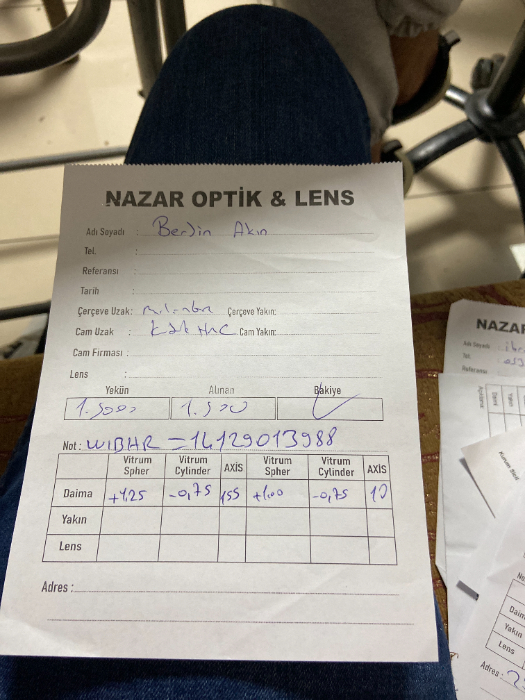 NAZAR OPTİK & LENS
Adı Soyadı : Berjin Akın
Tel. :
Referansı :
Tarih :
Çerçeve Uzak: Çerçeve Yakın:
Cam Uzak : HMC Cam Yakın:
Cam Firması :
Lens :
Yekün Alınan Bakiye
1.500
Not : WIBHR = 14129013988
Vitrum Spher Vitrum Cylinder AXİS Vitrum Spher Vitrum Cylinder AXİS
Daima +1,25 -0,75 155 +1,00 -0,75 10
Yakın
Lens
Adres :
NAZAR
Adı Soyadı
Tel.
Referansı
Daim
Yakın
Lens
Adres :